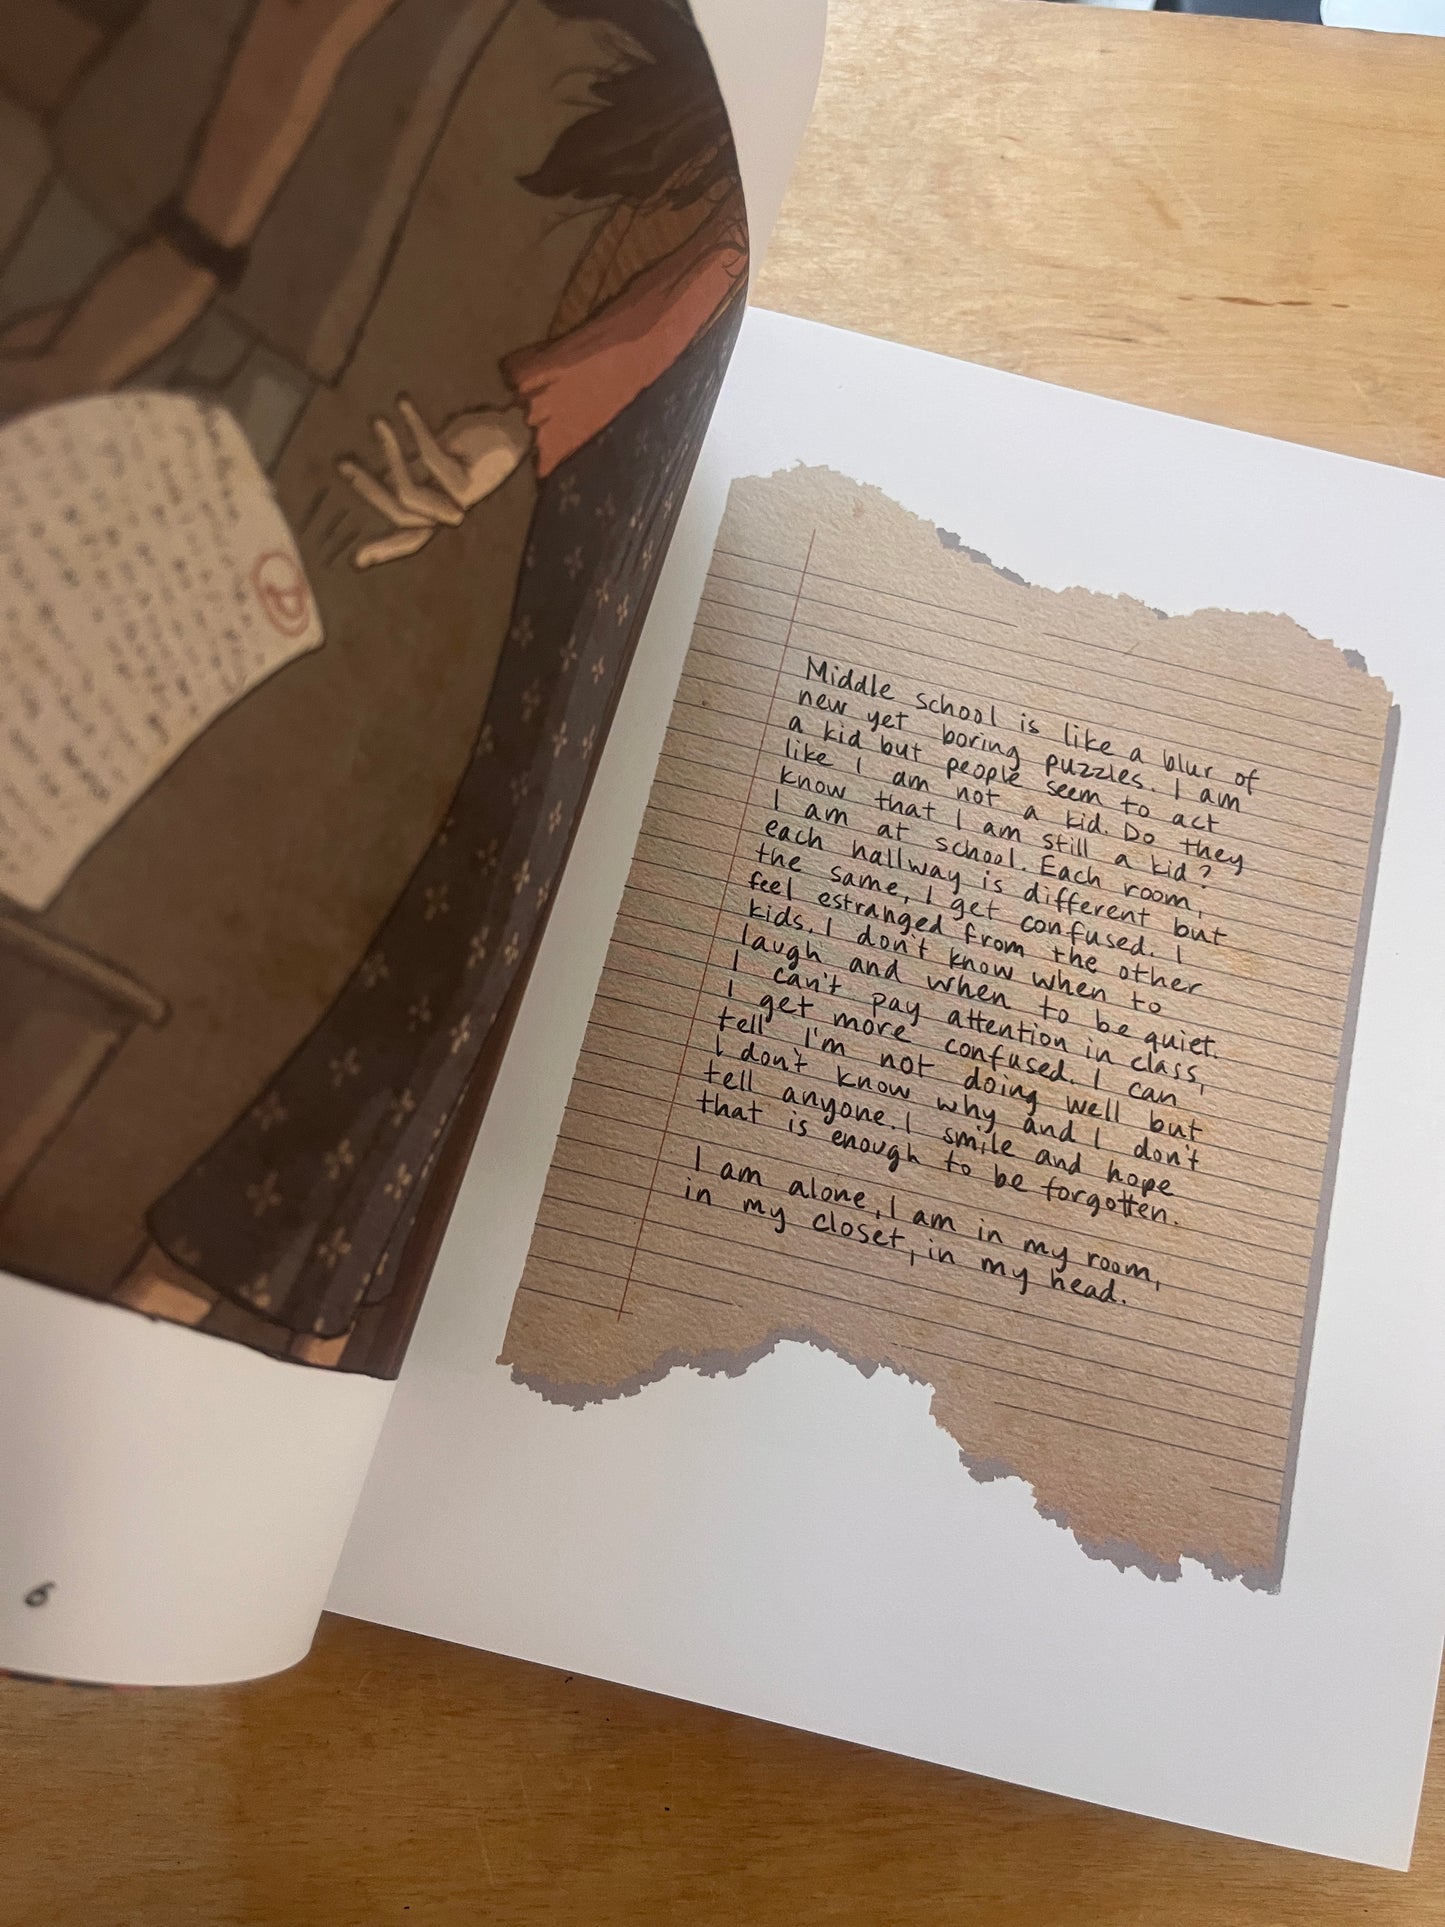 Middle school is like a blur of
new yet boring puzzles. I am
a kid but people seem to act
like I am not a kid. Do they
know that I am still a kid?
I am at school. Each room,
each hallway is different but
the same, I get confused. I
feel estranged from the other
kids. I don't know when to
laugh and when to be quiet.
I can't pay attention in class,
I get more confused. I can
tell I'm not doing well but
I don't know why and I don't
tell anyone. I smile and hope
that is enough to be forgotten.
I am alone, I am in my room,
in my closet, in my head.
6